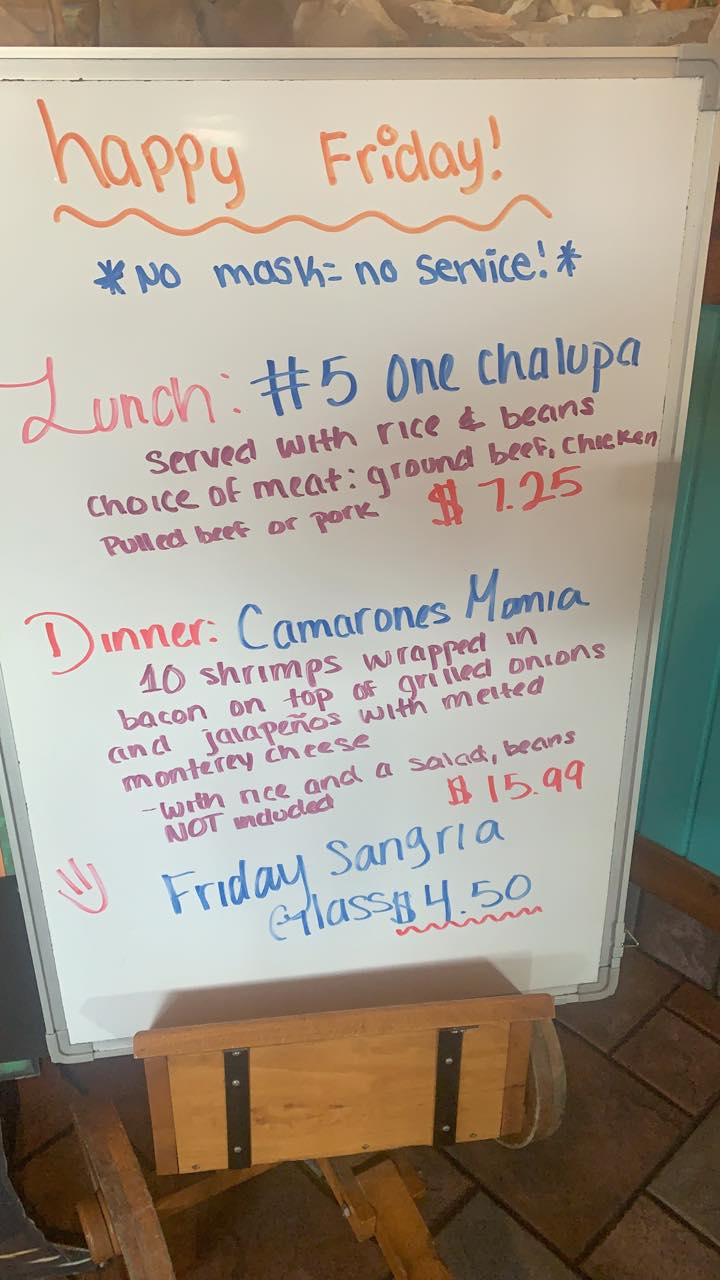 happy Friday!
*No mask= no service!*
Lunch: #5 One Chalupa
Served with rice & beans
Choice of meat: ground beef, chicken
Pulled beef or pork $7.25
Dinner: Camarones Momia
10 shrimps wrapped in
bacon on top of grilled onions
and jalapeños with melted
monterey cheese
-with rice and a salad, beans
NOT included $15.99
Friday Sangria
Glass $4.50